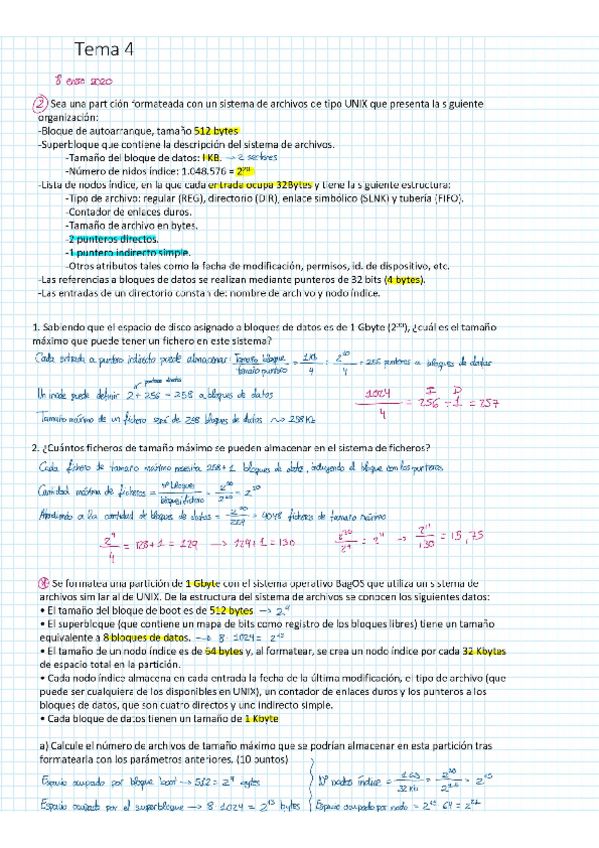 Tema 4
8 enero 2020
2 Sea una partición formateada con un sistema de archivos de tipo UNIX que presenta la siguiente
organización:
-Bloque de autoarranque, tamaño 512 bytes
-Superbloque que contiene la descripción del sistema de archivos.
-Tamaño del bloque de datos: 1 KB. → 2 sectores
-Número de nidos índice: 1.048.576 = 2²⁰
-Lista de nodos índice, en la que cada entrada ocupa 32Bytes y tiene la siguiente estructura:
-Tipo de archivo: regular (REG), directorio (DIR), enlace simbólico (SLNK) y tubería (FIFO).
-Contador de enlaces duros.
-Tamaño de archivo en bytes.
-2 punteros directos.
-1 puntero indirecto simple.
-Otros atributos tales como la fecha de modificación, permisos, id. de dispositivo, etc.
-Las referencias a bloques de datos se realizan mediante punteros de 32 bits (4 bytes).
-Las entradas de un directorio constan de: nombre de archivo y nodo índice.
1. Sabiendo que el espacio de disco asignado a bloques de datos es de 1 Gbyte (2³⁰), ¿cuál es el tamaño
máximo que puede tener un fichero en este sistema?
Cada entrada a puntero indirecto puede almacenar: Tamaño bloque / tamaño puntero = 1KB / 4 = 2¹⁰ / 4 = 256 punteros a bloques de datos
punteros directos
Un inode puede definir 2 + 256 = 258 a bloques de datos
1024 / 4 = 256 + 1 = 257
I D
Tamaño máximo de un fichero será de 258 bloques de datos → 258 Kb
2. ¿Cuántos ficheros de tamaño máximo se pueden almacenar en el sistema de ficheros?
Cada fichero de tamaño máximo necesita 258 + 1 bloques de datos, incluyendo el bloque con los punteros
Cantidad máxima de ficheros = nº bloques / bloques fichero = = 2²⁰
Atendiendo a la cantidad de bloques de datos = 2²⁰ / 259 = 4048 ficheros de tamaño máximo
2⁹ / 4 = 128 + 1 = 129 → 129 + 1 = 130
2²⁰ / 2⁹ = 2¹¹ → 2¹¹ / 130 = 15,75
Se formatea una partición de 1 Gbyte con el sistema operativo BagOS que utiliza un sistema de
archivos similar al de UNIX. De la estructura del sistema de archivos se conocen los siguientes datos:
• El tamaño del bloque de boot es de 512 bytes → 2⁹
• El superbloque (que contiene un mapa de bits como registro de los bloques libres) tiene un tamaño
equivalente a 8 bloques de datos. → 8 · 1024 = 2¹³
• El tamaño de un nodo índice es de 64 bytes y, al formatear, se crea un nodo índice por cada 32 Kbytes
de espacio total en la partición.
• Cada nodo índice almacena en cada entrada la fecha de la última modificación, el tipo de archivo (que
puede ser cualquiera de los disponibles en UNIX), un contador de enlaces duros y los punteros a los
bloques de datos, que son cuatro directos y uno indirecto simple.
• Cada bloque de datos tienen un tamaño de 1 Kbyte
a) Calcule el número de archivos de tamaño máximo que se podrían almacenar en esta partición tras
formatearla con los parámetros anteriores. (10 puntos)
Espacio ocupado por bloque boot → 512 = 2⁹ bytes
Nº nodos índice = 1 GB / 32 Kb = 2³⁰ / = 2¹⁵
Espacio ocupado por el superbloque → 8 · 1024 = 2¹³ bytes
Espacio ocupado por nodo = 2¹⁵ · 64 = 2²¹